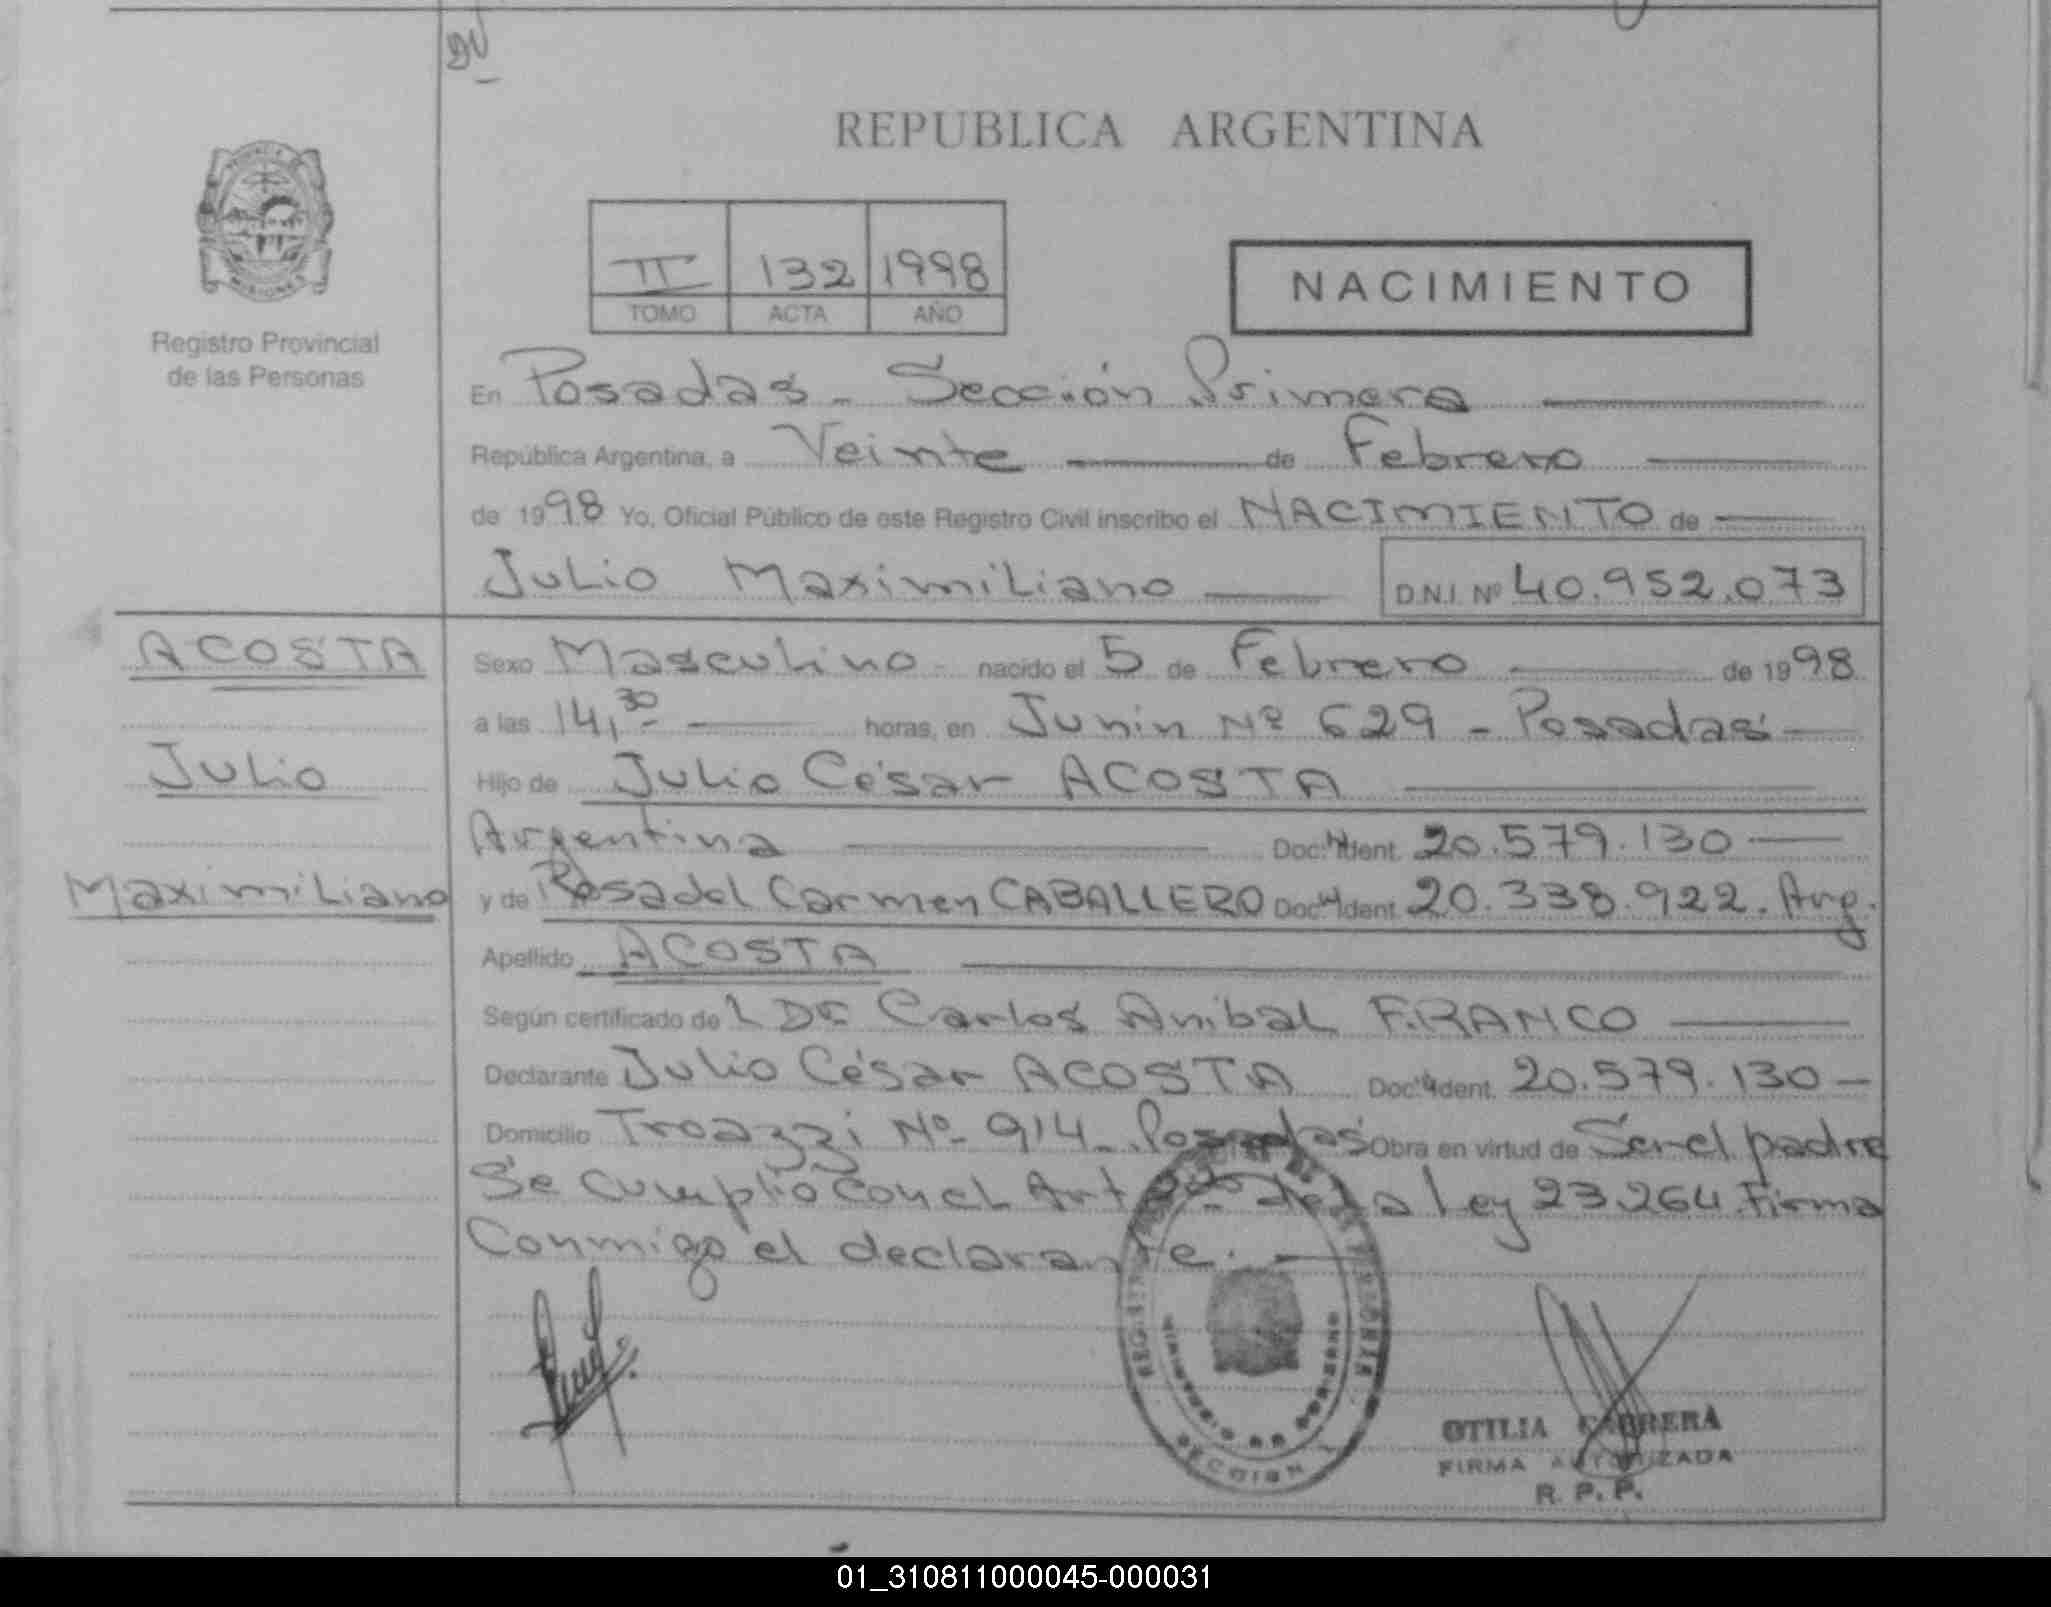 REPUBLICA ARGENTINA
PROVINCIA DE MISIONES
Registro Provincial
de las Personas
II 132 1998
TOMO ACTA AÑO
NACIMIENTO
En Posadas - Sección Primera
República Argentina, a Veinte de Febrero
de 1998 Yo, Oficial Público de este Registro Civil inscribo el NACIMIENTO de
Julio Maximiliano D.N.I. Nº 40.952.073
ACOSTA
Julio
Maximiliano
Sexo Masculino - nacido el 5 de Febrero de 1998
a las 14,30 horas, en Junin Nº 629 - Posadas
Hijo de Julio César ACOSTA
Argentina Doc. Ident. 20.579.130
y de Rosa del Carmen CABALLERO Doc. Ident. 20.338.922. Arg.
Apellido ACOSTA
Según certificado de Carlos Anibal FRANCO
Declarante Julio César ACOSTA Doc. Ident. 20.579.130
Domicilio Troazzi Nº 914 - Posadas Obra en virtud de Ser el padre
Se cumplió con el Art de la Ley 23.264. Firma
Conmigo el declarante.
SECCION
OTILIA CABRERA
FIRMA AUTORIZADA
R. P. P.
01_310811000045-000031